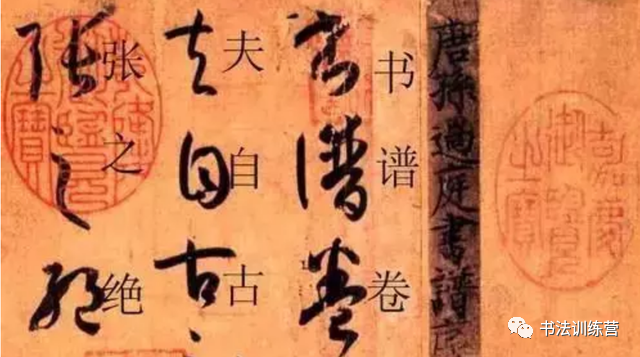 嘉慶御覽之寶
唐孫過庭書譜序
书谱卷
書譜卷
夫自古
夫自古
张之绝
張之絕
书法训练营